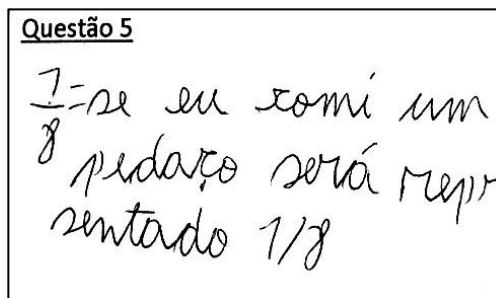 Questão 5
1/8 = se eu comi um
pedaço será repr
sentado 1/8